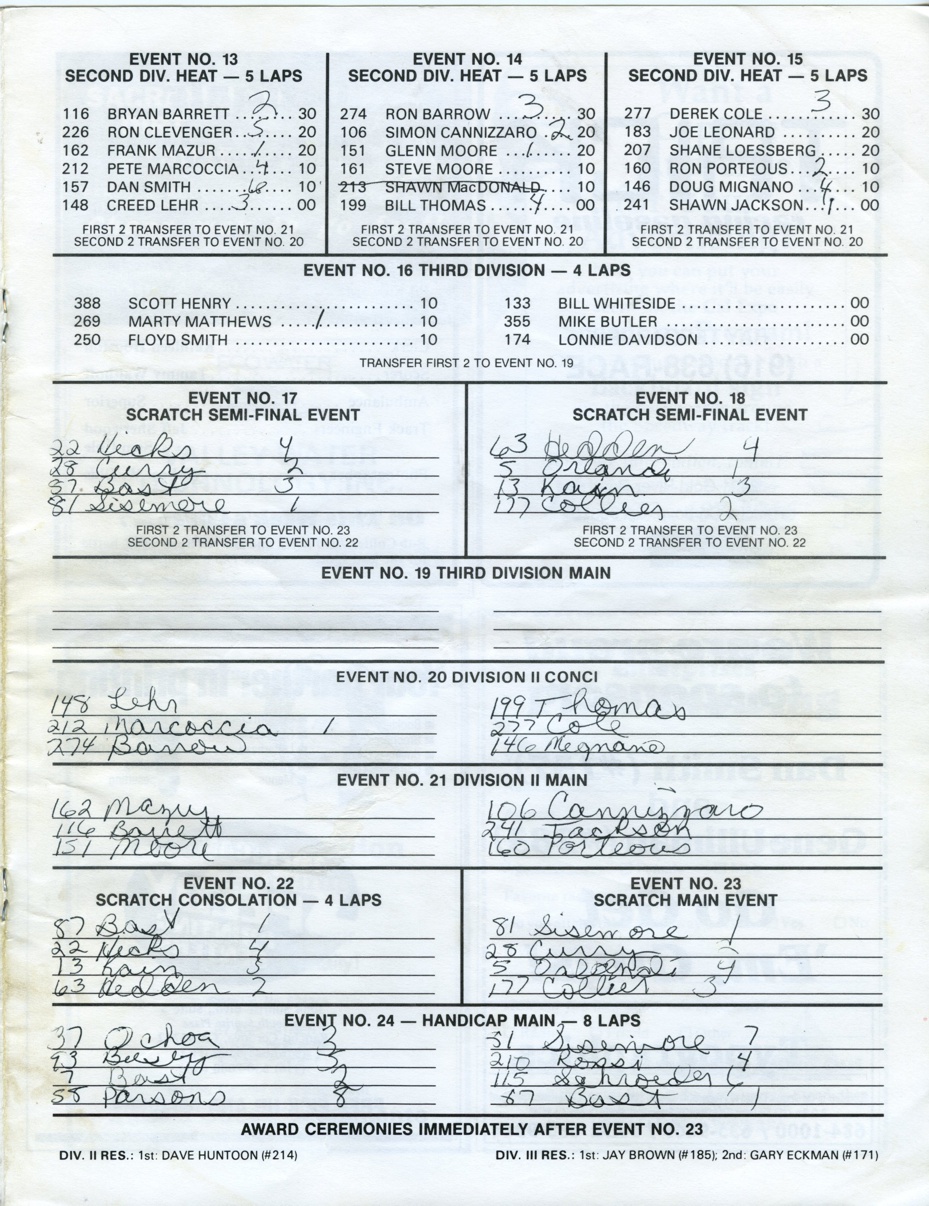 EVENT NO. 13
SECOND DIV. HEAT — 5 LAPS
116 BRYAN BARRETT ..2.. 30
226 RON CLEVENGER ..5.. 20
162 FRANK MAZUR ..1.. 20
212 PETE MARCOCCIA ..4.. 10
157 DAN SMITH ..6.. 10
148 CREED LEHR ..3.. 00
FIRST 2 TRANSFER TO EVENT NO. 21
SECOND 2 TRANSFER TO EVENT NO. 20
EVENT NO. 14
SECOND DIV. HEAT — 5 LAPS
274 RON BARROW ..3.. 30
106 SIMON CANNIZZARO .2. 20
151 GLENN MOORE ..1.. 20
161 STEVE MOORE .......... 10
213 SHAWN MacDONALD.. 10
199 BILL THOMAS ..4.. 00
FIRST 2 TRANSFER TO EVENT NO. 21
SECOND 2 TRANSFER TO EVENT NO. 20
EVENT NO. 15
SECOND DIV. HEAT — 5 LAPS
277 DEREK COLE ..3.. 30
183 JOE LEONARD .......... 20
207 SHANE LOESSBERG .... 20
160 RON PORTEOUS ..2.. 10
146 DOUG MIGNANO ..4.. 10
241 SHAWN JACKSON ..1.. 00
FIRST 2 TRANSFER TO EVENT NO. 21
SECOND 2 TRANSFER TO EVENT NO. 20
EVENT NO. 16 THIRD DIVISION — 4 LAPS
388 SCOTT HENRY .......................... 10
269 MARTY MATTHEWS .....1.............. 10
250 FLOYD SMITH .......................... 10
133 BILL WHITESIDE ........................ 00
355 MIKE BUTLER ........................... 00
174 LONNIE DAVIDSON ..................... 00
TRANSFER FIRST 2 TO EVENT NO. 19
EVENT NO. 17
SCRATCH SEMI-FINAL EVENT
22 Hicks 4
28 Curry 2
87 Bast 3
81 Sisemore 1
FIRST 2 TRANSFER TO EVENT NO. 23
SECOND 2 TRANSFER TO EVENT NO. 22
EVENT NO. 18
SCRATCH SEMI-FINAL EVENT
63 Hedden 4
5 Orlandi 1
13 Kain 3
177 Collier 2
FIRST 2 TRANSFER TO EVENT NO. 23
SECOND 2 TRANSFER TO EVENT NO. 22
EVENT NO. 19 THIRD DIVISION MAIN
EVENT NO. 20 DIVISION II CONCI
148 Lehr
212 Marcoccia 1
274 Barrow
199 Thomas
277 Cole
146 Megnano
EVENT NO. 21 DIVISION II MAIN
162 Mazur
116 Barrett
151 Moore
106 Cannizzaro
241 Jackson
160 Porteous
EVENT NO. 22
SCRATCH CONSOLATION — 4 LAPS
87 Bast 1
22 Hicks 4
13 Kain 3
63 Hedden 2
EVENT NO. 23
SCRATCH MAIN EVENT
81 Sisemore 1
28 Curry 2
5 Orlandi 4
177 Collier 3
EVENT NO. 24 — HANDICAP MAIN — 8 LAPS
37 Ochoa 3
93 5
7 Bast 2
58 Parsons 8
81 Sisemore 7
210 Rossi 4
115 Schroeder 6
87 Bast 1
AWARD CEREMONIES IMMEDIATELY AFTER EVENT NO. 23
DIV. II RES.: 1st: DAVE HUNTOON (#214)
DIV. III RES.: 1st: JAY BROWN (#185); 2nd: GARY ECKMAN (#171)